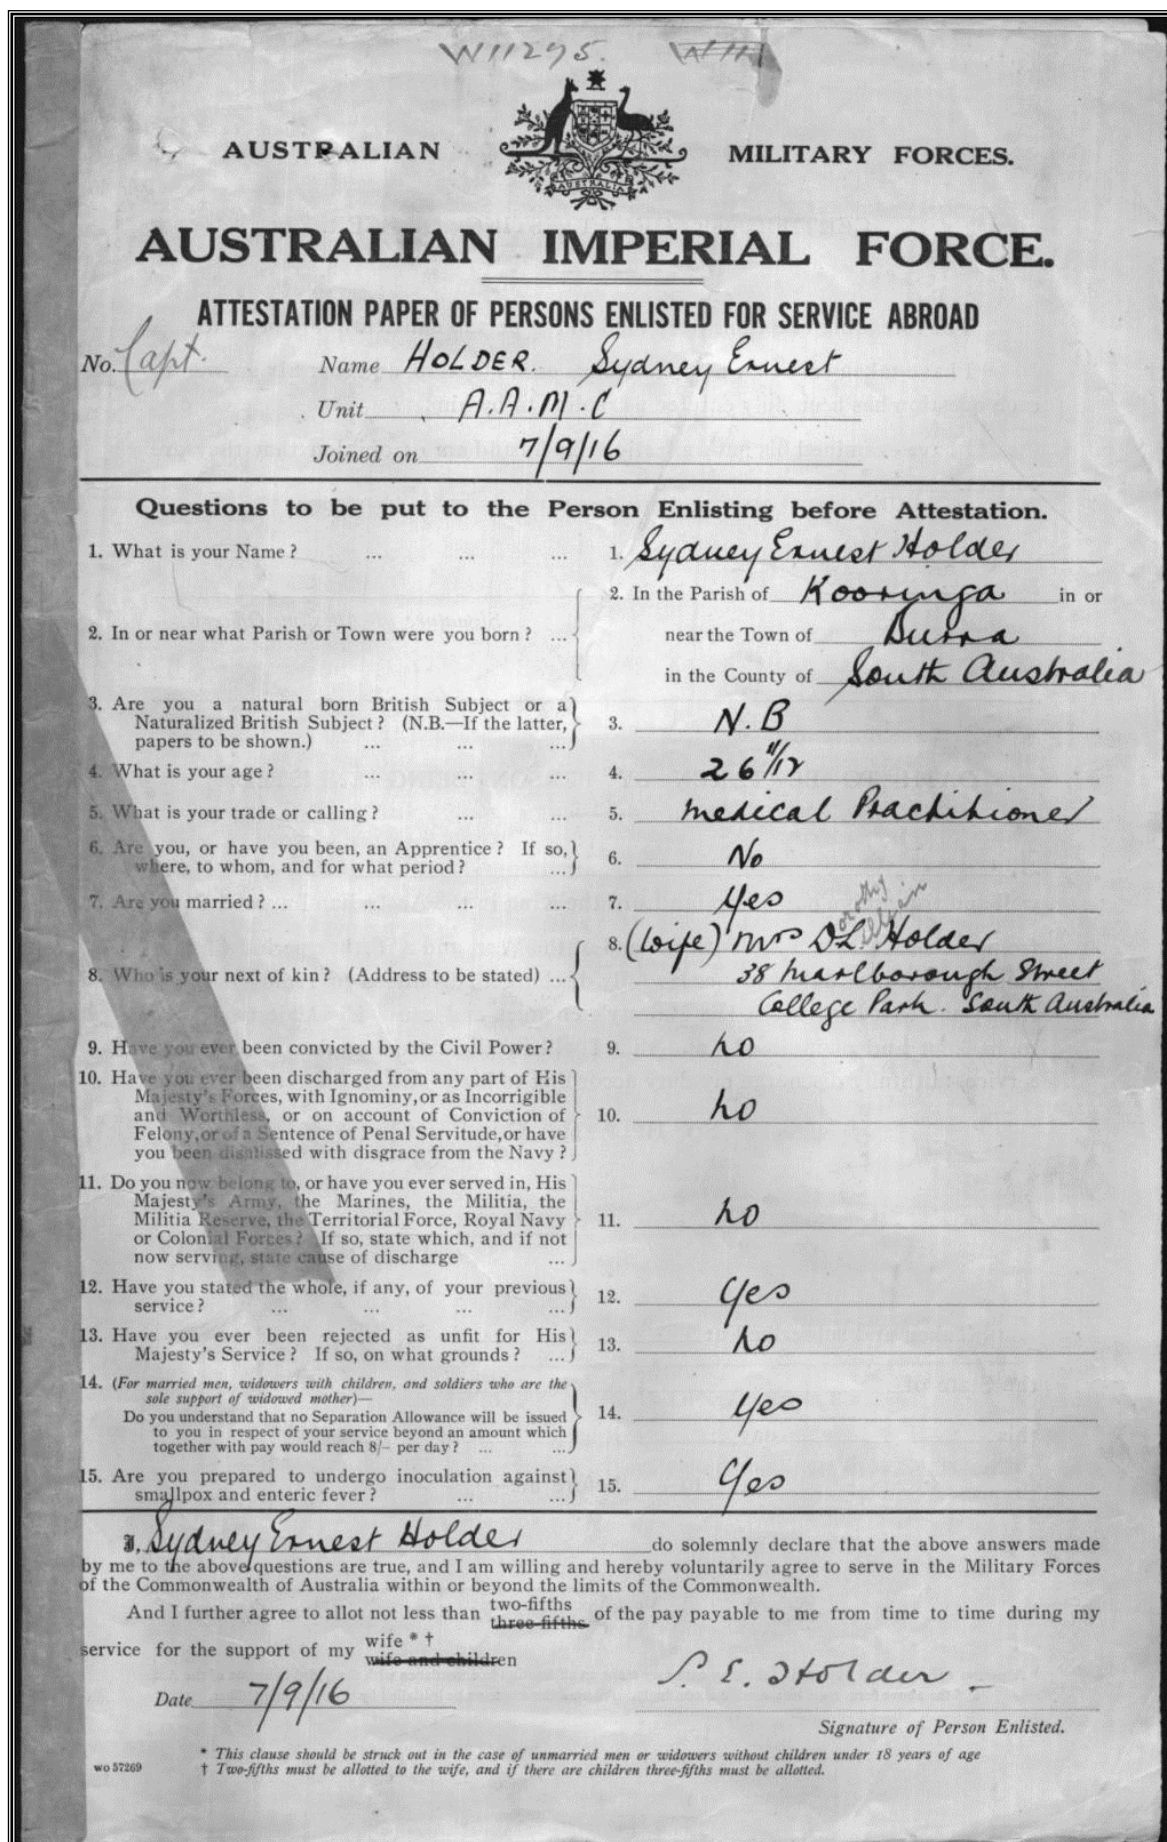 W11295. W111
AUSTRALIAN MILITARY FORCES.
AUSTRALIA
AUSTRALIAN IMPERIAL FORCE.
ATTESTATION PAPER OF PERSONS ENLISTED FOR SERVICE ABROAD
No. Capt. Name HOLDER. Sydney Ernest
Unit A.A.M.C
Joined on 7/9/16
Questions to be put to the Person Enlisting before Attestation.
1. What is your Name? ... ... ... 1. Sydney Ernest Holder
2. In or near what Parish or Town were you born? ... 2. In the Parish of Kooringa in or
near the Town of Burra
in the County of South Australia
3. Are you a natural born British Subject or a
Naturalized British Subject? (N.B.—If the latter, 3. N.B
papers to be shown.) ... ... ...
4. What is your age? ... ... ... 4. 26 11/12
5. What is your trade or calling? ... ... 5. Medical Practitioner
6. Are you, or have you been, an Apprentice? If so,
where, to whom, and for what period? ... 6. No
7. Are you married? ... ... ... ... 7. Yes
orothy illian
8. Who is your next of kin? (Address to be stated) ... 8. (wife) Mrs D L Holder
38 Marlborough Street
College Park. South Australia
9. Have you ever been convicted by the Civil Power? 9. no
10. Have you ever been discharged from any part of His
Majesty's Forces, with Ignominy, or as Incorrigible
and Worthless, or on account of Conviction of 10. no
Felony, or of a Sentence of Penal Servitude, or have
you been dismissed with disgrace from the Navy?
11. Do you now belong to, or have you ever served in, His
Majesty's Army, the Marines, the Militia, the
Militia Reserve, the Territorial Force, Royal Navy 11. no
or Colonial Forces? If so, state which, and if not
now serving, state cause of discharge ...
12. Have you stated the whole, if any, of your previous
service? ... ... ... ... 12. Yes
13. Have you ever been rejected as unfit for His
Majesty's Service? If so, on what grounds? ... 13. no
14. (For married men, widowers with children, and soldiers who are the
sole support of widowed mother)—
Do you understand that no Separation Allowance will be issued 14. Yes
to you in respect of your service beyond an amount which
together with pay would reach 8/- per day? ... ...
15. Are you prepared to undergo inoculation against
smallpox and enteric fever? ... ... 15. Yes
I, Sydney Ernest Holder do solemnly declare that the above answers made
by me to the above questions are true, and I am willing and hereby voluntarily agree to serve in the Military Forces
of the Commonwealth of Australia within or beyond the limits of the Commonwealth.
And I further agree to allot not less than two-fifths three-fifths of the pay payable to me from time to time during my
service for the support of my wife * † wife and children
Date 7/9/16 S. E. Holder
Signature of Person Enlisted.
* This clause should be struck out in the case of unmarried men or widowers without children under 18 years of age
WO 57269 † Two-fifths must be allotted to the wife, and if there are children three-fifths must be allotted.